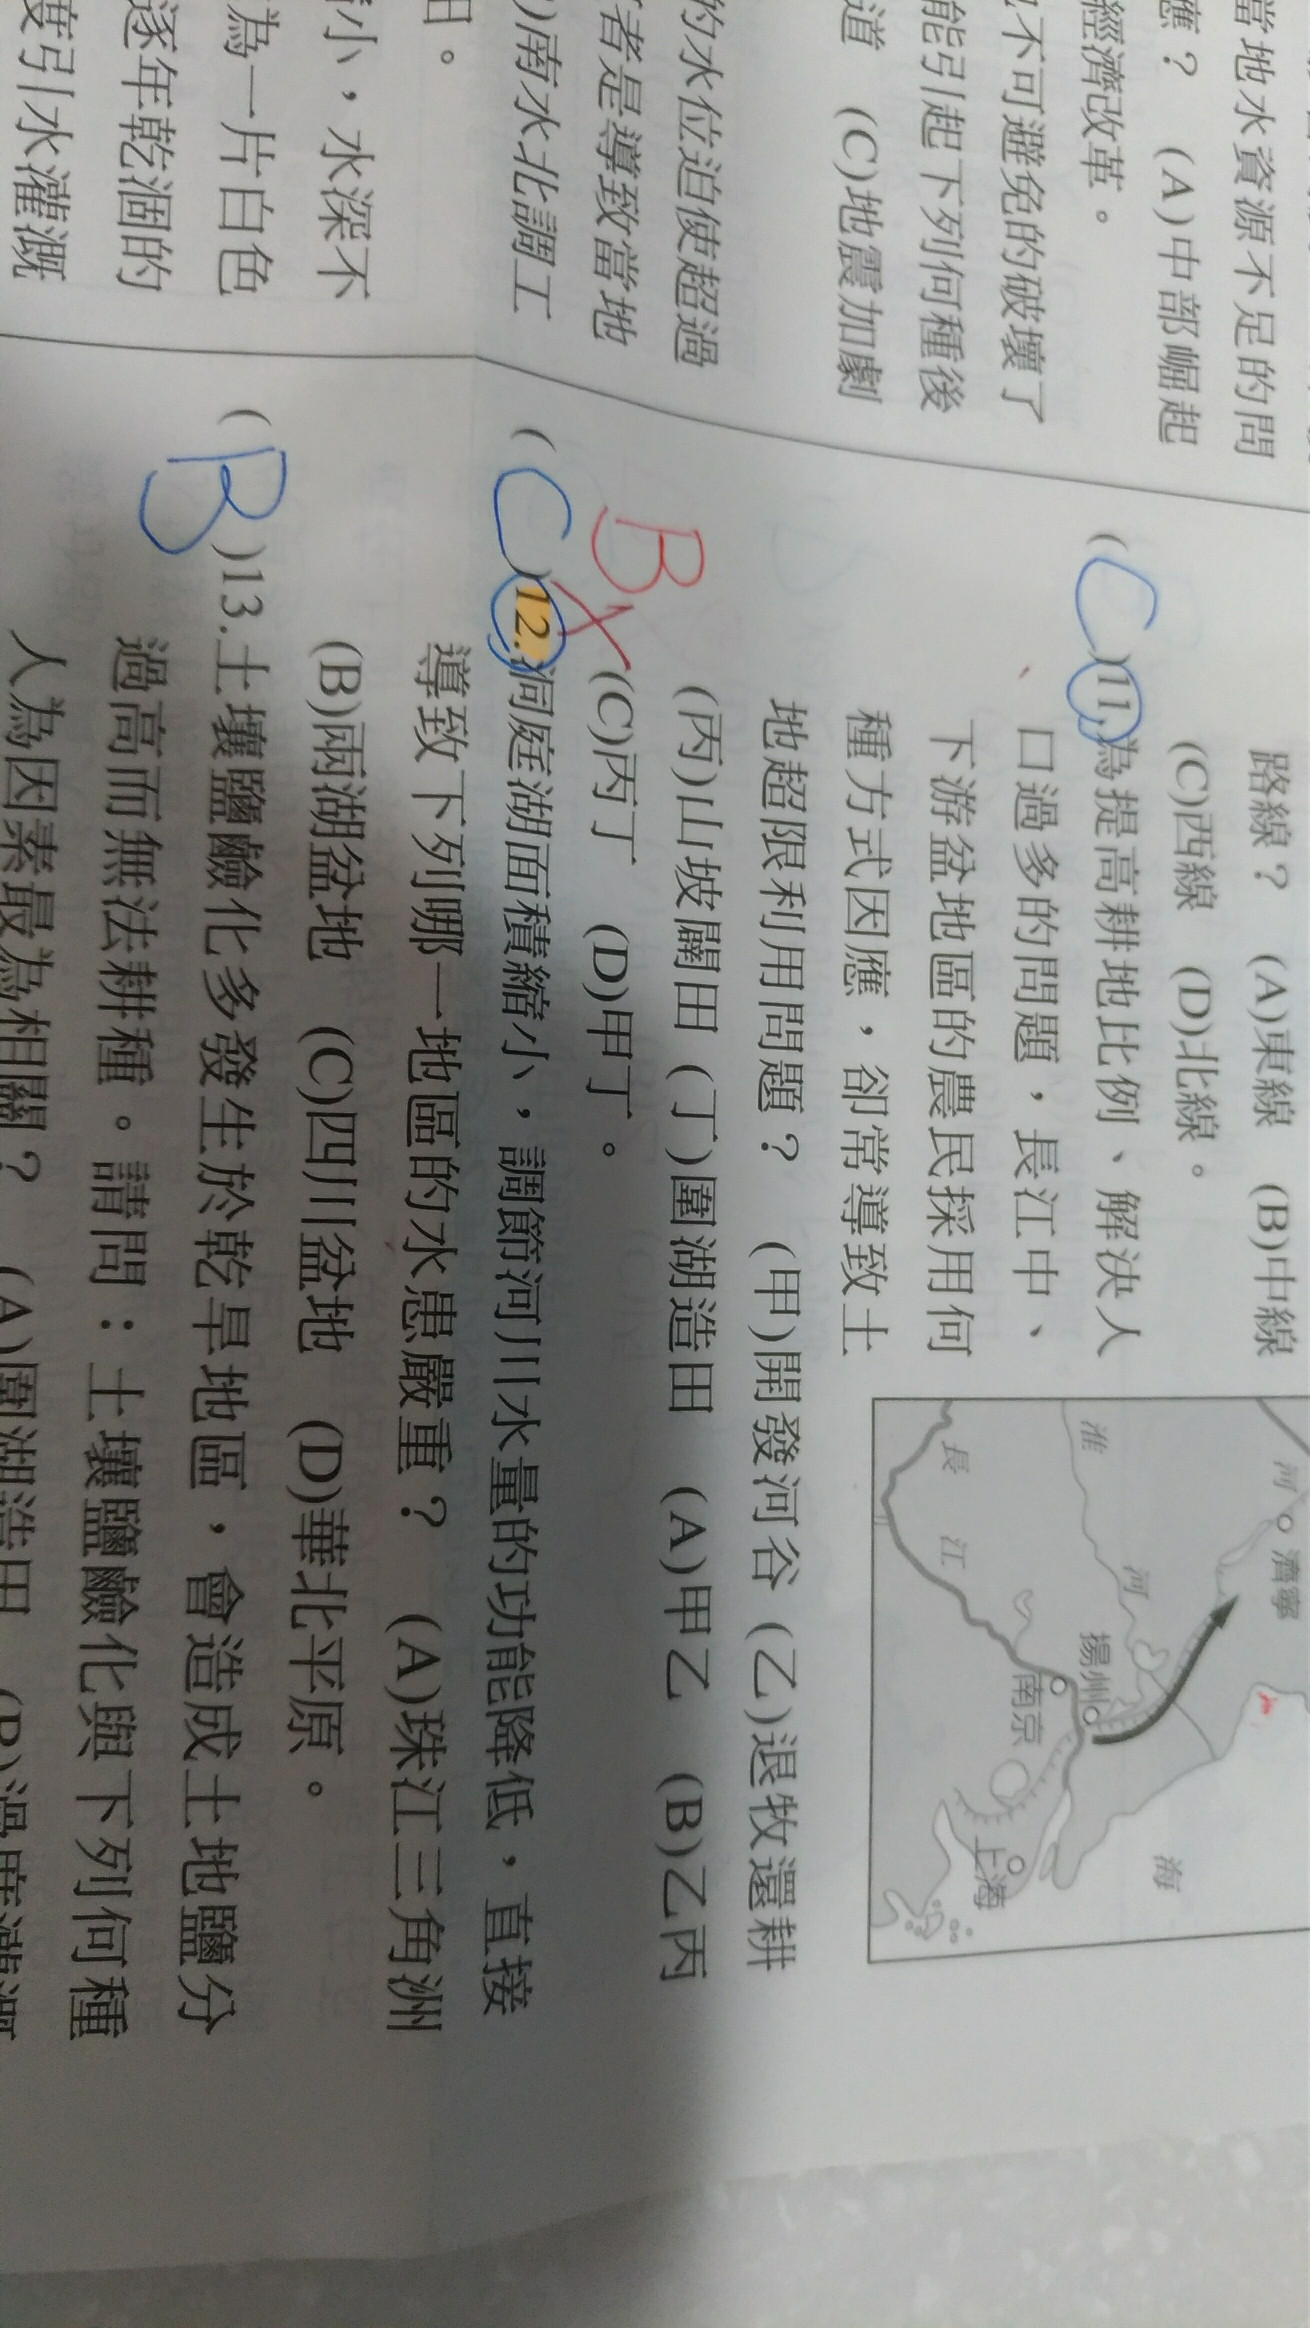 當地水資源不足的問
應？ (A)中部崛起
經濟改革。
不可避免的破壞了
能引起下列何種後
道 (C)地震加劇
的水位迫使超過
者是導致當地
)南水北調工
田。
小，水深不
為一片白色
逐年乾涸的
度引水灌溉
路線？ (A)東線 (B)中線
(C)西線 (D)北線。
(C)11.為提高耕地比例、解決人
口過多的問題，長江中、
下游盆地區的農民採用何
種方式因應，卻常導致土
地超限利用問題？ (甲)開發河谷 (乙)退牧還耕
(丙)山坡闢田 (丁)圍湖造田 (A)甲乙 (B)乙丙
(C)丙丁 (D)甲丁。
B
(C)12.洞庭湖面積縮小，調節河川水量的功能降低，直接
導致下列哪一地區的水患嚴重？ (A)珠江三角洲
(B)兩湖盆地 (C)四川盆地 (D)華北平原。
(B)13.土壤鹽鹼化多發生於乾旱地區，會造成土地鹽分
過高而無法耕種。請問：土壤鹽鹼化與下列何種
人為因素最為相關？ (A)圍湖造田 (B)過度灌溉
河
濟寧
淮
河
揚州
長
江
南京
上海
海